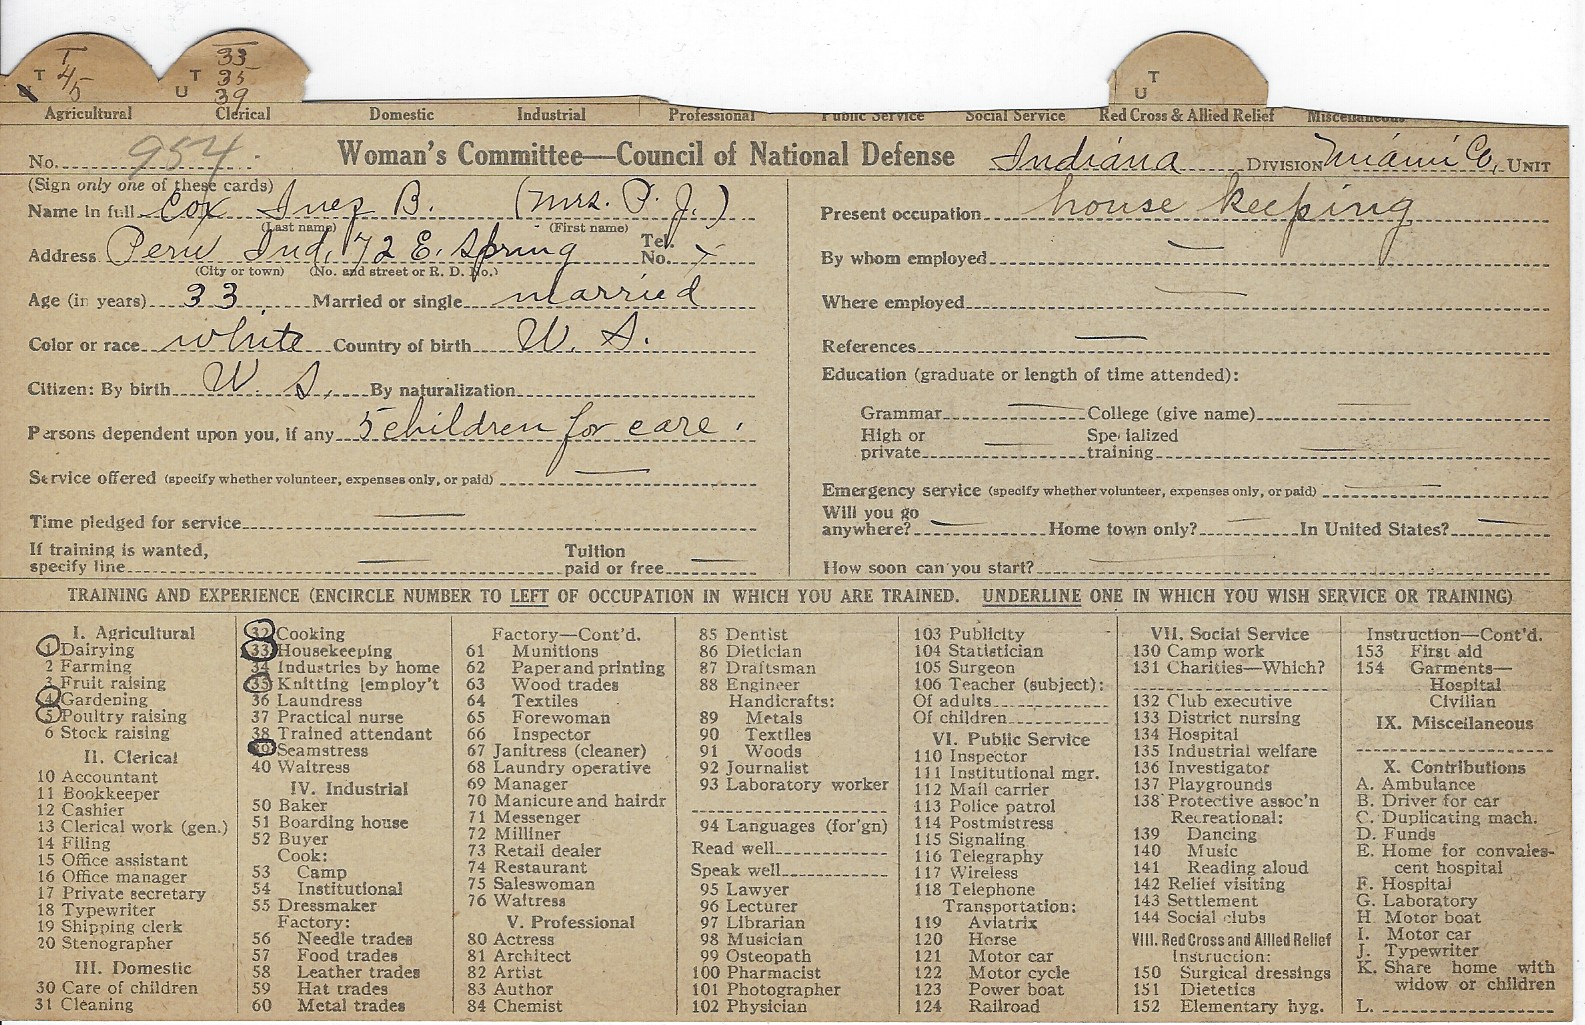 T T 33 T
T 45 T 35
U U 39 U
Agricultural Clerical Domestic Industrial Professional Public Service Social Service Red Cross & Allied Relief Miscellaneous
No. 954 Woman's Committee—Council of National Defense Indiana DIVISION Miami Co. UNIT
(Sign only one of these cards)
Name in full Cox Inez B. (Mrs. P. J.)
(Last name) (First name)
Address Peru Ind. 72 E. Spring Tel. No. x
(City or town) (No. and street or R. D. No.)
Age (in years) 33 Married or single married
Color or race white Country of birth U. S.
Citizen: By birth U. S. By naturalization
Persons dependent upon you, if any 5 children for care.
Service offered (specify whether volunteer, expenses only, or paid)
Time pledged for service
If training is wanted, specify line Tuition paid or free
Present occupation house keeping
By whom employed
Where employed
References
Education (graduate or length of time attended):
Grammar College (give name)
High or private Specialized training
Emergency service (specify whether volunteer, expenses only, or paid)
Will you go anywhere? Home town only? In United States?
How soon can you start?
TRAINING AND EXPERIENCE (ENCIRCLE NUMBER TO LEFT OF OCCUPATION IN WHICH YOU ARE TRAINED. UNDERLINE ONE IN WHICH YOU WISH SERVICE OR TRAINING)
I. Agricultural
1 Dairying
2 Farming
3 Fruit raising
4 Gardening
5 Poultry raising
6 Stock raising
II. Clerical
10 Accountant
11 Bookkeeper
12 Cashier
13 Clerical work (gen.)
14 Filing
15 Office assistant
16 Office manager
17 Private secretary
18 Typewriter
19 Shipping clerk
20 Stenographer
III. Domestic
30 Care of children
31 Cleaning
32 Cooking
33 Housekeeping
34 Industries by home
35 Knitting [employ't
36 Laundress
37 Practical nurse
38 Trained attendant
39 Seamstress
40 Waitress
IV. Industrial
50 Baker
51 Boarding house
52 Buyer
Cook:
53 Camp
54 Institutional
55 Dressmaker
Factory:
56 Needle trades
57 Food trades
58 Leather trades
59 Hat trades
60 Metal trades
Factory—Cont'd.
61 Munitions
62 Paper and printing
63 Wood trades
64 Textiles
65 Forewoman
66 Inspector
67 Janitress (cleaner)
68 Laundry operative
69 Manager
70 Manicure and hairdr
71 Messenger
72 Milliner
73 Retail dealer
74 Restaurant
75 Saleswoman
76 Waitress
V. Professional
80 Actress
81 Architect
82 Artist
83 Author
84 Chemist
85 Dentist
86 Dietician
87 Draftsman
88 Engineer
Handicrafts:
89 Metals
90 Textiles
91 Woods
92 Journalist
93 Laboratory worker
94 Languages (for'gn)
Read well
Speak well
95 Lawyer
96 Lecturer
97 Librarian
98 Musician
99 Osteopath
100 Pharmacist
101 Photographer
102 Physician
103 Publicity
104 Statistician
105 Surgeon
106 Teacher (subject):
Of adults
Of children
VI. Public Service
110 Inspector
111 Institutional mgr.
112 Mail carrier
113 Police patrol
114 Postmistress
115 Signaling
116 Telegraphy
117 Wireless
118 Telephone
Transportation:
119 Aviatrix
120 Horse
121 Motor car
122 Motor cycle
123 Power boat
124 Railroad
VII. Social Service
130 Camp work
131 Charities—Which?
132 Club executive
133 District nursing
134 Hospital
135 Industrial welfare
136 Investigator
137 Playgrounds
138 Protective assoc'n
Recreational:
139 Dancing
140 Music
141 Reading aloud
142 Relief visiting
143 Settlement
144 Social clubs
VIII. Red Cross and Allied Relief
Instruction:
150 Surgical dressings
151 Dietetics
152 Elementary hyg.
Instruction—Cont'd.
153 First aid
154 Garments—
Hospital
Civilian
IX. Miscellaneous
X. Contributions
A. Ambulance
B. Driver for car
C. Duplicating mach.
D. Funds
E. Home for convales-
cent hospital
F. Hospital
G. Laboratory
H. Motor boat
I. Motor car
J. Typewriter
K. Share home with
widow or children
L.